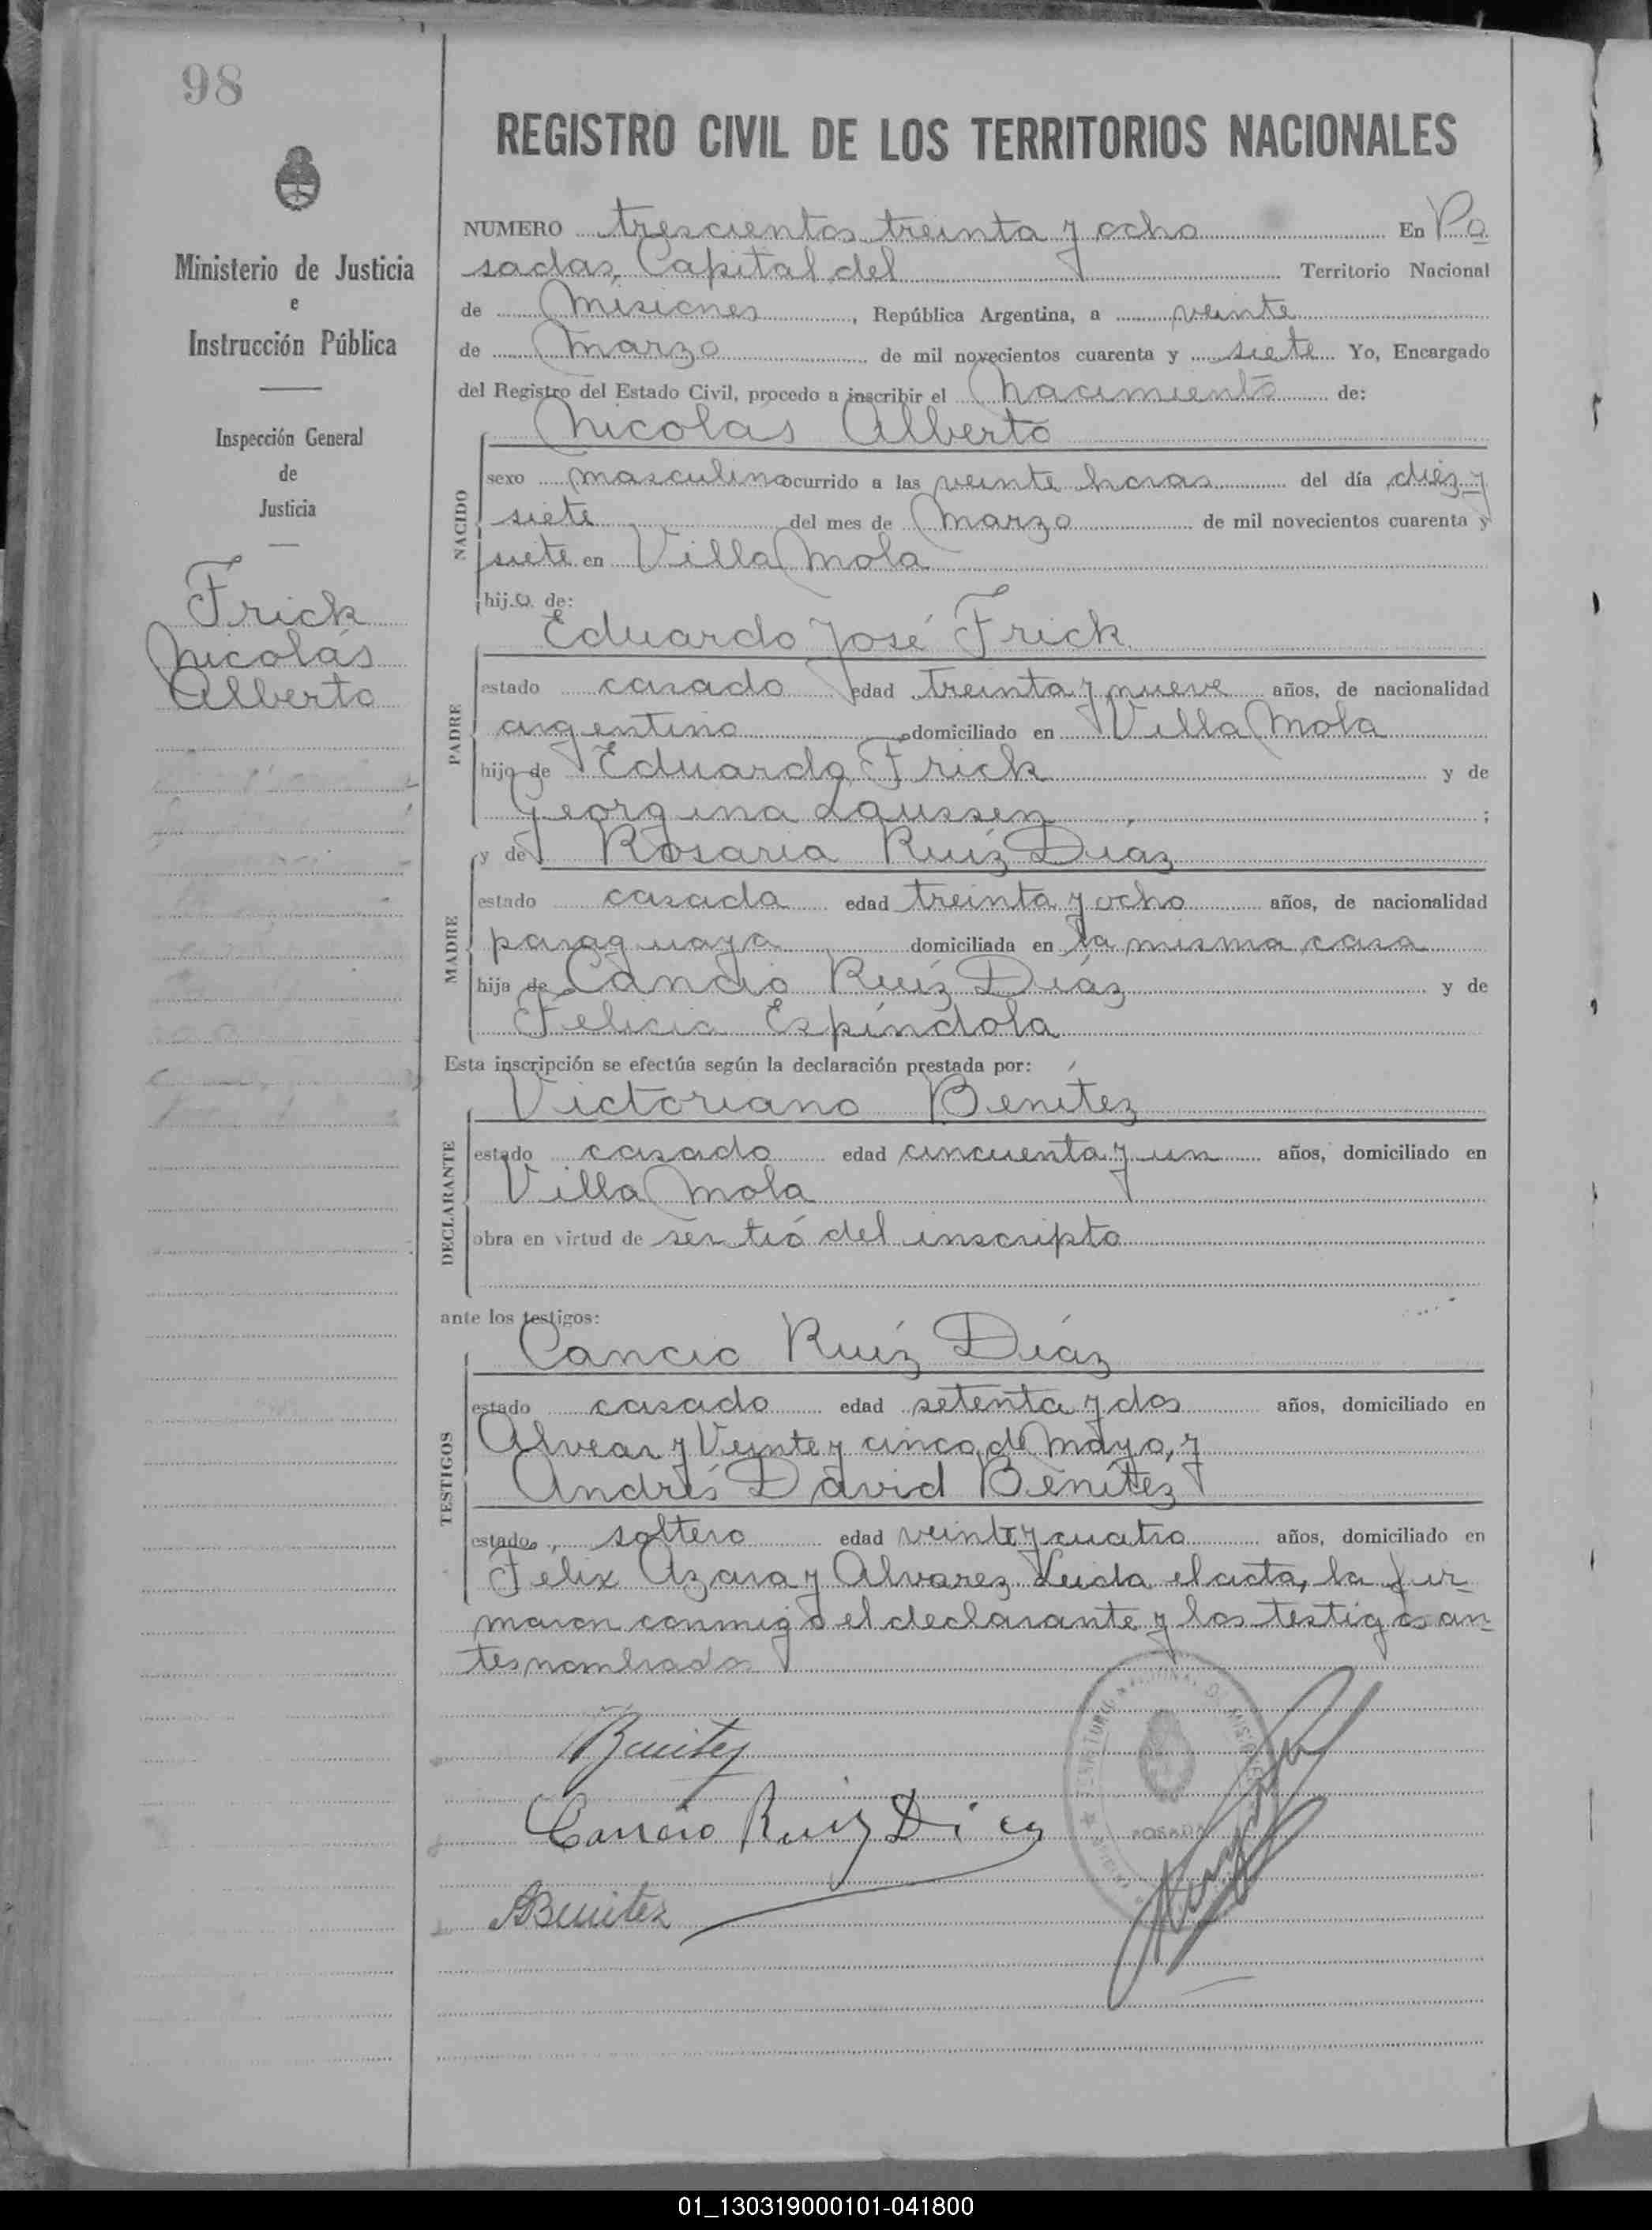 98
REGISTRO CIVIL DE LOS TERRITORIOS NACIONALES
Ministerio de Justicia
e
Instrucción Pública
Inspección General
de
Justicia
Frick
Nicolás
Alberto
NUMERO trescientos treinta y ocho En Po
sadas, Capital del Territorio Nacional
de Misiones, República Argentina, a veinte
de Marzo de mil novecientos cuarenta y siete Yo, Encargado
del Registro del Estado Civil, procedo a inscribir el Nacimiento de:
Nicolás Alberto
NACIDO
sexo masculino ocurrido a las veinte horas del día diez y
siete del mes de Marzo de mil novecientos cuarenta y
siete en Villa Mola
hij.o. de:
Eduardo José Frick
PADRE
estado casado edad treinta y nueve años, de nacionalidad
argentino domiciliado en Villa Mola
hijo de Eduardo Frick y de
Georgina Laussen ;
y de Rosaria Ruíz Diaz
MADRE
estado casada edad treinta y ocho años, de nacionalidad
paraguaya domiciliada en la misma casa
hija de Cancio Ruíz Díaz y de
Felicia Espíndola
Esta inscripción se efectúa según la declaración prestada por:
Victoriano Benítez
DECLARANTE
estado casado edad cincuenta y un años, domiciliado en
Villa Mola
obra en virtud de ser tió del inscripto
ante los testigos:
Cancio Ruíz Díaz
TESTIGOS
estado casado edad setenta y dos años, domiciliado en
Alvear y Veinte y cinco de Mayo, y
Andrés David Benítez
estado, soltero edad veinte y cuatro años, domiciliado en
Felix Azara y Alvarez Leida el acta, la fir-
maron conmigo el declarante y los testigos an-
tes nombrados
Benitez
Cancio Ruiz Diaz
ABenitez
POSADAS
01_130319000101-041800